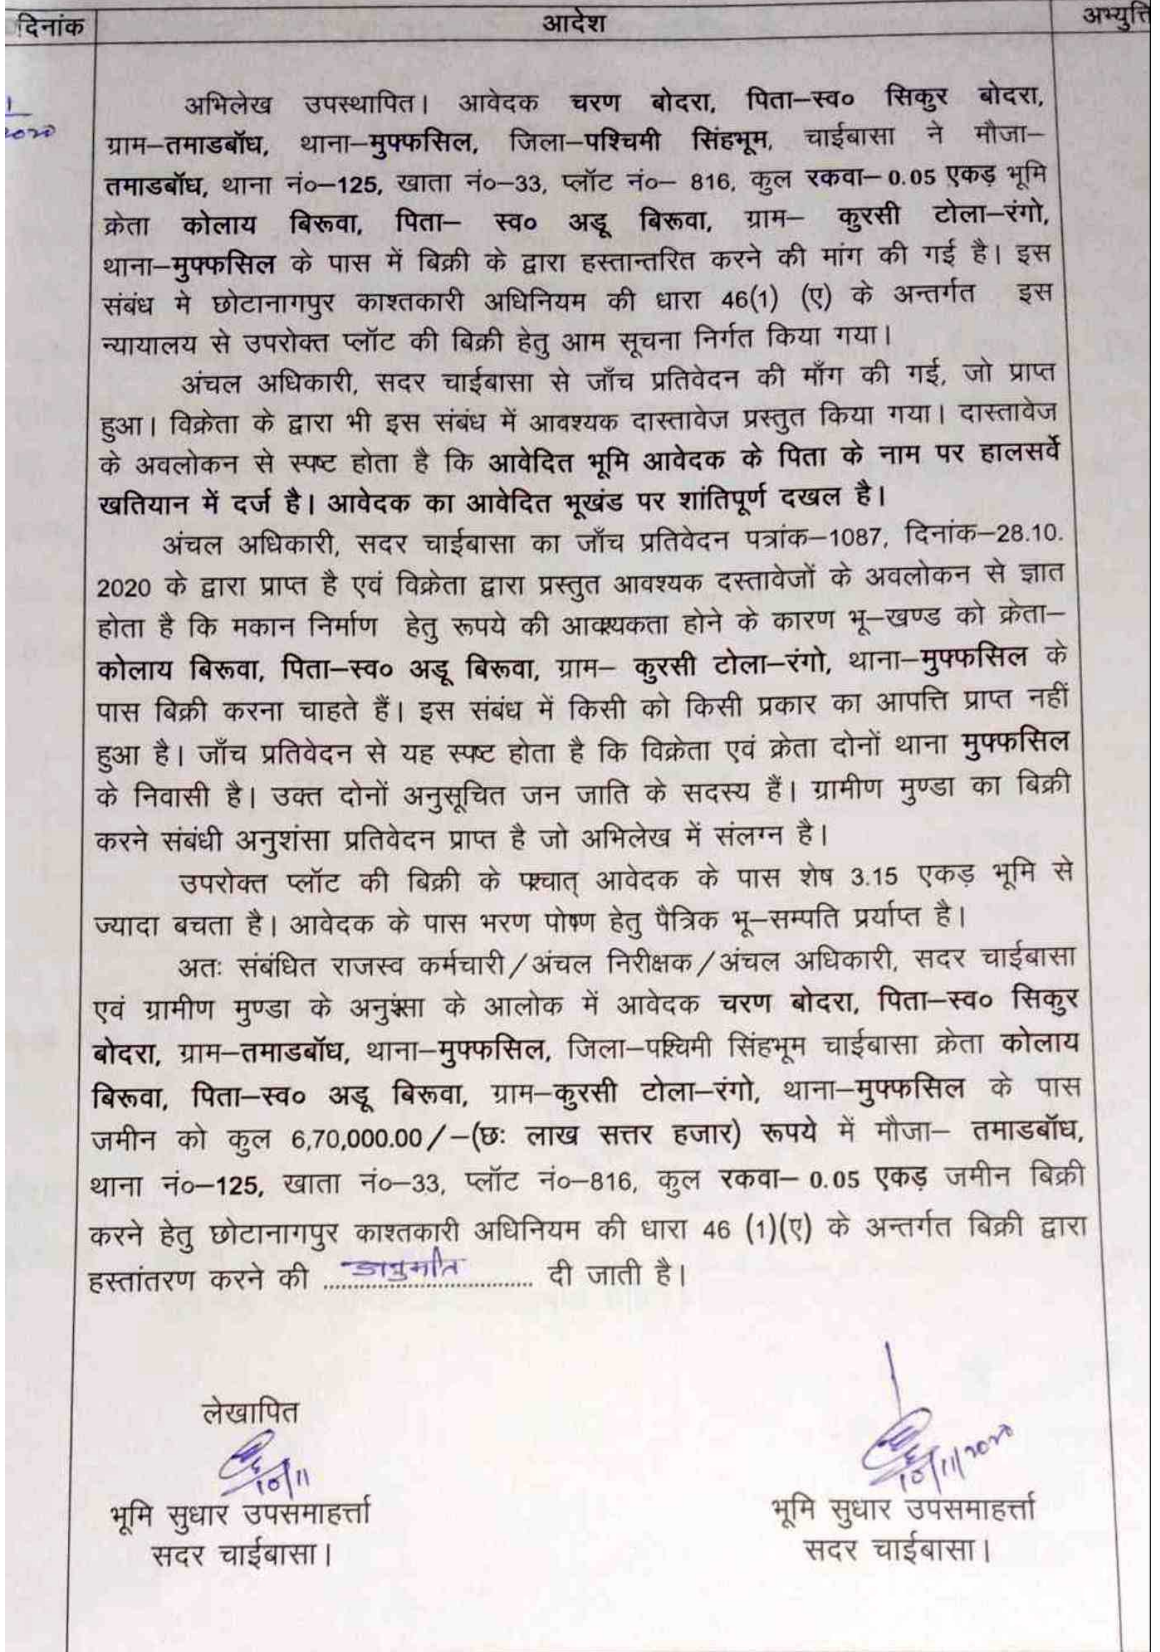 दिनांक आदेश अभ्युक्ति
2020
अभिलेख उपस्थापित। आवेदक चरण बोदरा, पिता–स्व० सिकुर बोदरा,
ग्राम–तमाडबॉध, थाना–मुफ्फसिल, जिला–पश्चिमी सिंहभूम, चाईबासा ने मौजा–
तमाडबॉध, थाना नं०–125, खाता नं०–33, प्लॉट नं०– 816, कुल रकवा– 0.05 एकड़ भूमि
क्रेता कोलाय बिरूवा, पिता– स्व० अडू बिरूवा, ग्राम– कुरसी टोला–रंगो,
थाना–मुफ्फसिल के पास में बिक्री के द्वारा हस्तान्तरित करने की मांग की गई है। इस
संबंध मे छोटानागपुर काश्तकारी अधिनियम की धारा 46(1) (ए) के अन्तर्गत इस
न्यायालय से उपरोक्त प्लॉट की बिक्री हेतु आम सूचना निर्गत किया गया।
अंचल अधिकारी, सदर चाईबासा से जाँच प्रतिवेदन की माँग की गई, जो प्राप्त
हुआ। विक्रेता के द्वारा भी इस संबंध में आवश्यक दास्तावेज प्रस्तुत किया गया। दास्तावेज
के अवलोकन से स्पष्ट होता है कि आवेदित भूमि आवेदक के पिता के नाम पर हालसर्वे
खतियान में दर्ज है। आवेदक का आवेदित भूखंड पर शांतिपूर्ण दखल है।
अंचल अधिकारी, सदर चाईबासा का जाँच प्रतिवेदन पत्रांक–1087, दिनांक–28.10.
2020 के द्वारा प्राप्त है एवं विक्रेता द्वारा प्रस्तुत आवश्यक दस्तावेजों के अवलोकन से ज्ञात
होता है कि मकान निर्माण हेतु रूपये की आवश्यकता होने के कारण भू–खण्ड को क्रेता–
कोलाय बिरूवा, पिता–स्व० अडू बिरूवा, ग्राम– कुरसी टोला–रंगो, थाना–मुफ्फसिल के
पास बिक्री करना चाहते हैं। इस संबंध में किसी को किसी प्रकार का आपत्ति प्राप्त नहीं
हुआ है। जाँच प्रतिवेदन से यह स्पष्ट होता है कि विक्रेता एवं क्रेता दोनों थाना मुफ्फसिल
के निवासी है। उक्त दोनों अनुसूचित जन जाति के सदस्य हैं। ग्रामीण मुण्डा का बिक्री
करने संबंधी अनुशंसा प्रतिवेदन प्राप्त है जो अभिलेख में संलग्न है।
उपरोक्त प्लॉट की बिक्री के पश्चात् आवेदक के पास शेष 3.15 एकड़ भूमि से
ज्यादा बचता है। आवेदक के पास भरण पोषण हेतु पैत्रिक भू–सम्पति प्रर्याप्त है।
अतः संबंधित राजस्व कर्मचारी/अंचल निरीक्षक/अंचल अधिकारी, सदर चाईबासा
एवं ग्रामीण मुण्डा के अनुशंसा के आलोक में आवेदक चरण बोदरा, पिता–स्व० सिकुर
बोदरा, ग्राम–तमाडबॉध, थाना–मुफ्फसिल, जिला–पश्चिमी सिंहभूम चाईबासा क्रेता कोलाय
बिरूवा, पिता–स्व० अडू बिरूवा, ग्राम–कुरसी टोला–रंगो, थाना–मुफ्फसिल के पास
जमीन को कुल 6,70,000.00/–(छः लाख सत्तर हजार) रूपये में मौजा– तमाडबॉध,
थाना नं०–125, खाता नं०–33, प्लॉट नं०–816, कुल रकवा– 0.05 एकड़ जमीन बिक्री
करने हेतु छोटानागपुर काश्तकारी अधिनियम की धारा 46 (1)(ए) के अन्तर्गत बिक्री द्वारा
हस्तांतरण करने की अनुमति दी जाती है।
लेखापित
10/11 10/11/2020
भूमि सुधार उपसमाहर्त्ता भूमि सुधार उपसमाहर्त्ता
सदर चाईबासा। सदर चाईबासा।